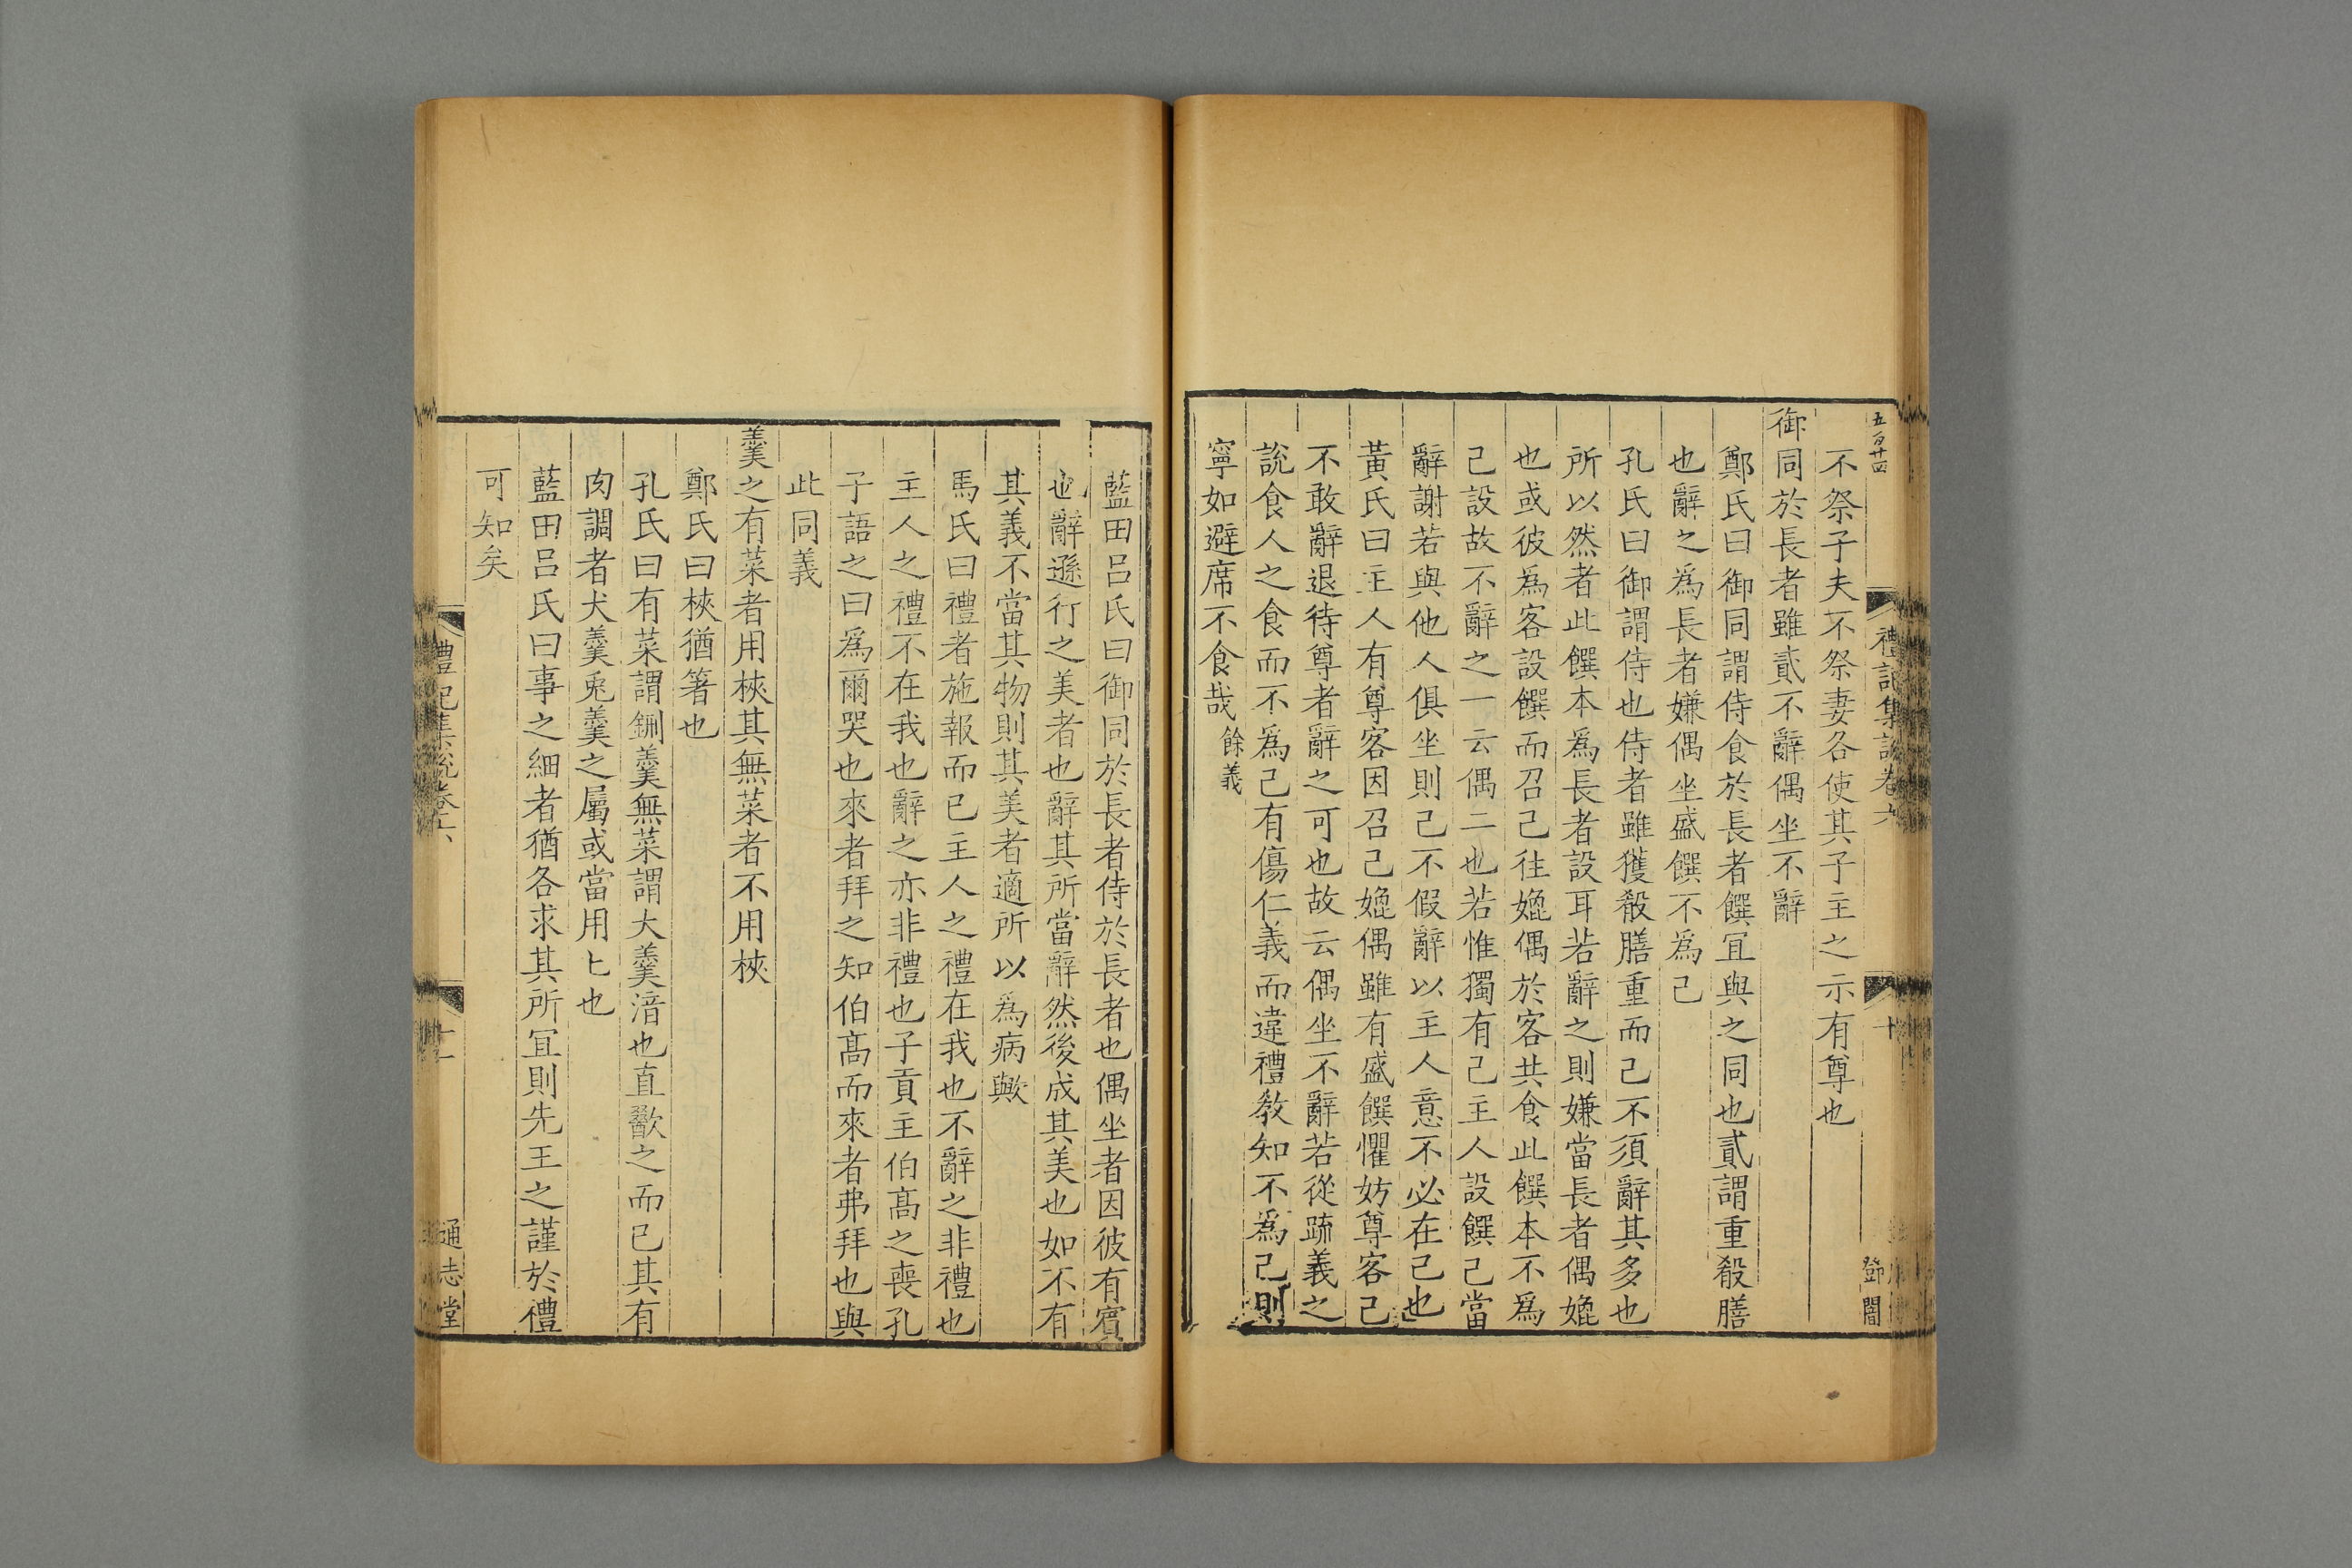 五百廿四
禮記集說卷六
十
鄧闇
不祭子夫不祭妻各使其子主之示有尊也
御同於長者雖貳不辭偶坐不辭
鄭氏曰御同謂侍食於長者饌宜與之同也貳謂重殽膳
也辭之爲長者嫌偶坐盛饌不爲己
孔氏曰御謂侍也侍者雖獲殽膳重而己不須辭其多也
所以然者此饌本爲長者設耳若辭之則嫌當長者偶媲
也或彼爲客設饌而召己往媲偶於客共食此饌本不爲
己設故不辭之一云偶二也若惟獨有己主人設饌己當
辭謝若與他人俱坐則己不假辭以主人意不必在己也
黃氏曰主人有尊客因召己媲偶雖有盛饌懼妨尊客己
不敢辭退待尊者辭之可也故云偶坐不辭若從疏義之
說食人之食而不爲己有傷仁義而違禮教知不爲己則
寧如避席不食哉餘義
藍田呂氏曰御同於長者侍於長者也偶坐者因彼有賓
也辭遜行之美者也辭其所當辭然後成其美也如不有
其義不當其物則其美者適所以爲病歟
馬氏曰禮者施報而已主人之禮在我也不辭之非禮也
主人之禮不在我也辭之亦非禮也子貢主伯髙之喪孔
子語之曰爲爾哭也來者拜之知伯髙而來者弗拜也與
此同義
羹之有菜者用梜其無菜者不用梜
鄭氏曰梜猶箸也
孔氏曰有菜謂鉶羹無菜謂大羹湆也直歠之而已其有
肉調者犬羹兎羹之屬或當用匕也
藍田呂氏曰事之細者猶各求其所宜則先王之謹於禮
可知矣
禮記集說卷六
十一
通志堂